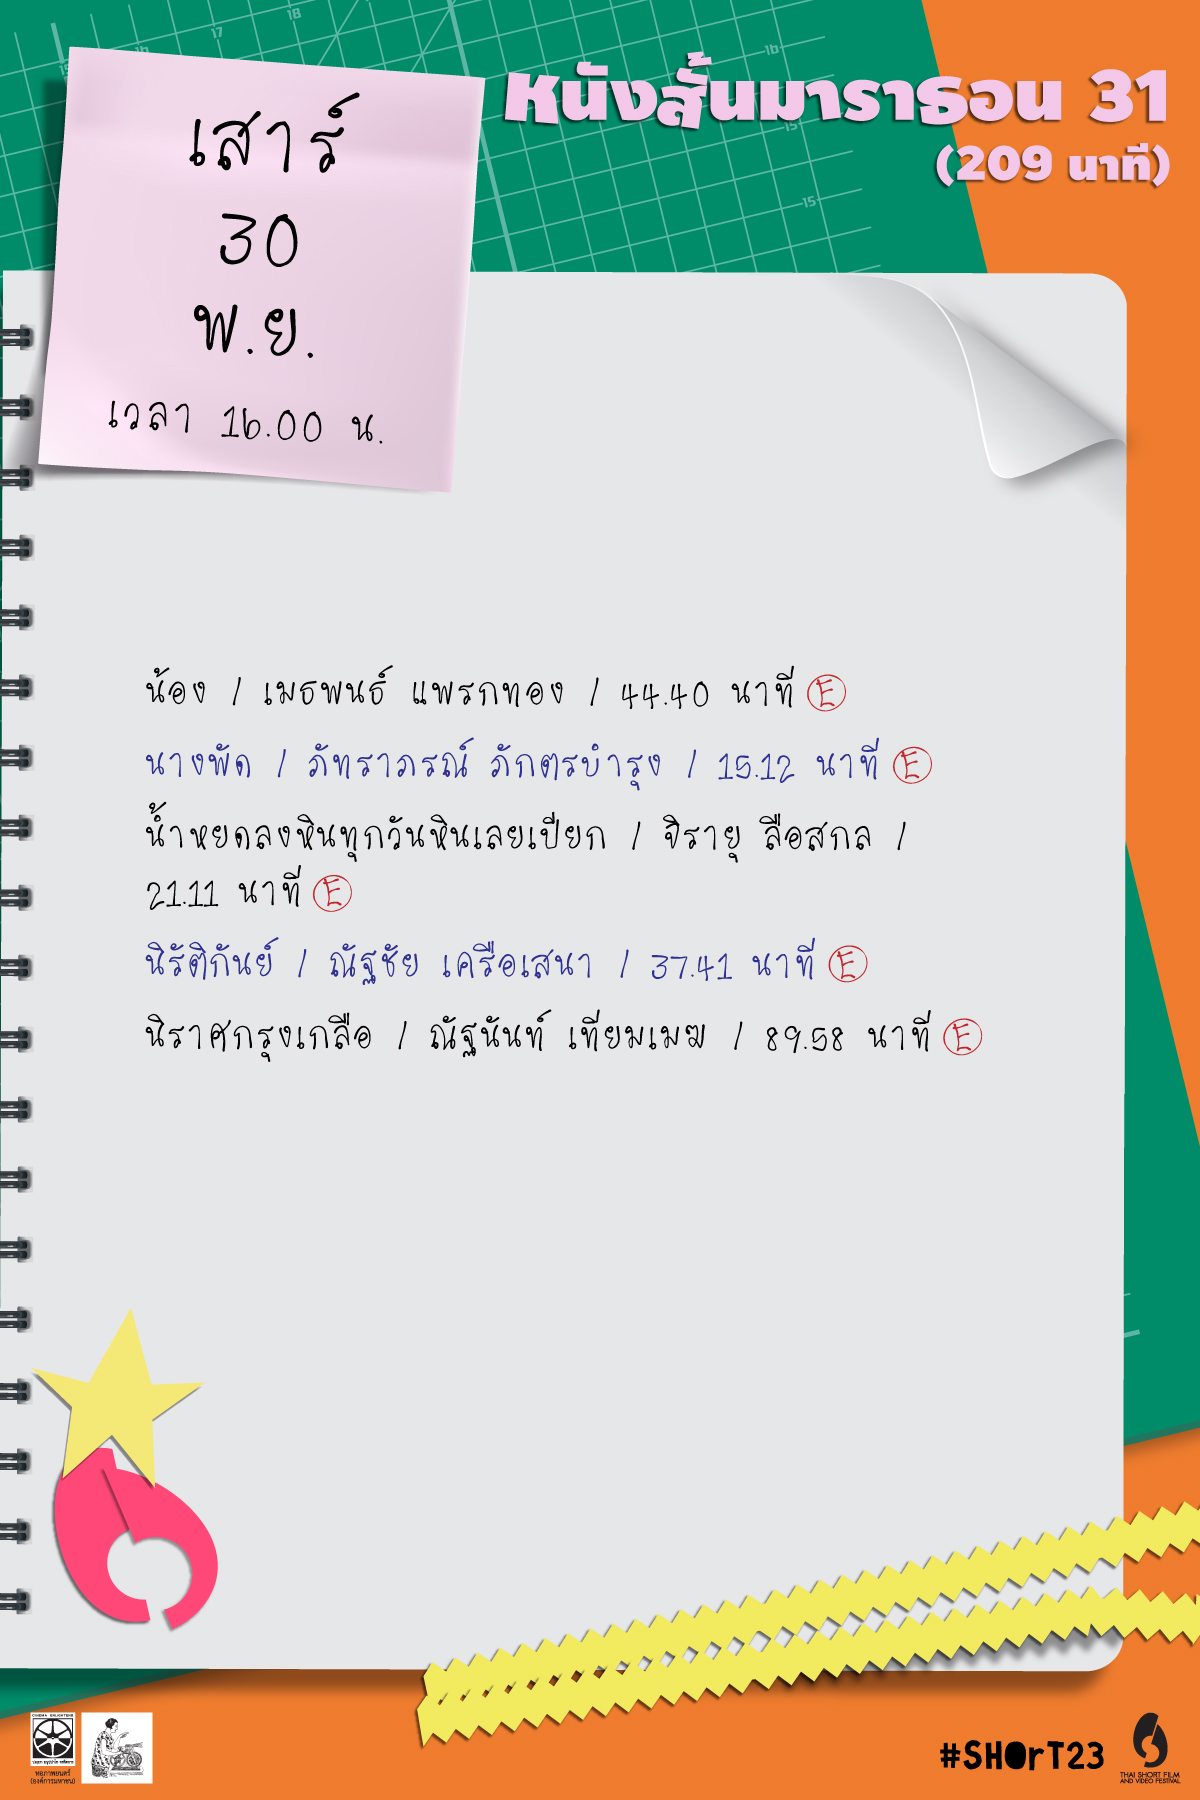 หนังสั้นมาราธอน 31
(209 นาที)
เสาร์
30
พ.ย.
เวลา 16.00 น.
18
17
16
15
16
15
15
น้อง / เมธพนธ์ แพรกทอง / 44.40 นาที E
นางพัด / ภัทราภรณ์ ภักตรบำรุง / 15.12 นาที E
น้ำหยดลงหินทุกวันหินเลยเปียก / จิรายุ ลือสกล /
21.11 นาที E
นิรัติกันย์ / ณัฐชัย เครือเสนา / 37.41 นาที E
นิราศกรุงเกลือ / ณัฐนันท์ เทียมเมฆ / 89.58 นาที E
CINEMA ENLIGHTENS
หอภาพยนตร์
(องค์การมหาชน)
#SHOrT23
THAI SHORT FILM
AND VIDEO FESTIVAL